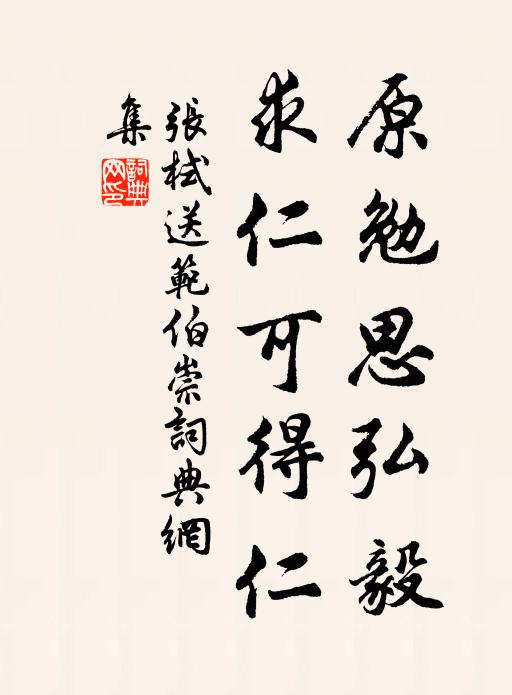 原勉思弘毅
求仁可得仁
張栻送範伯崇詞典網
集
詞典網印